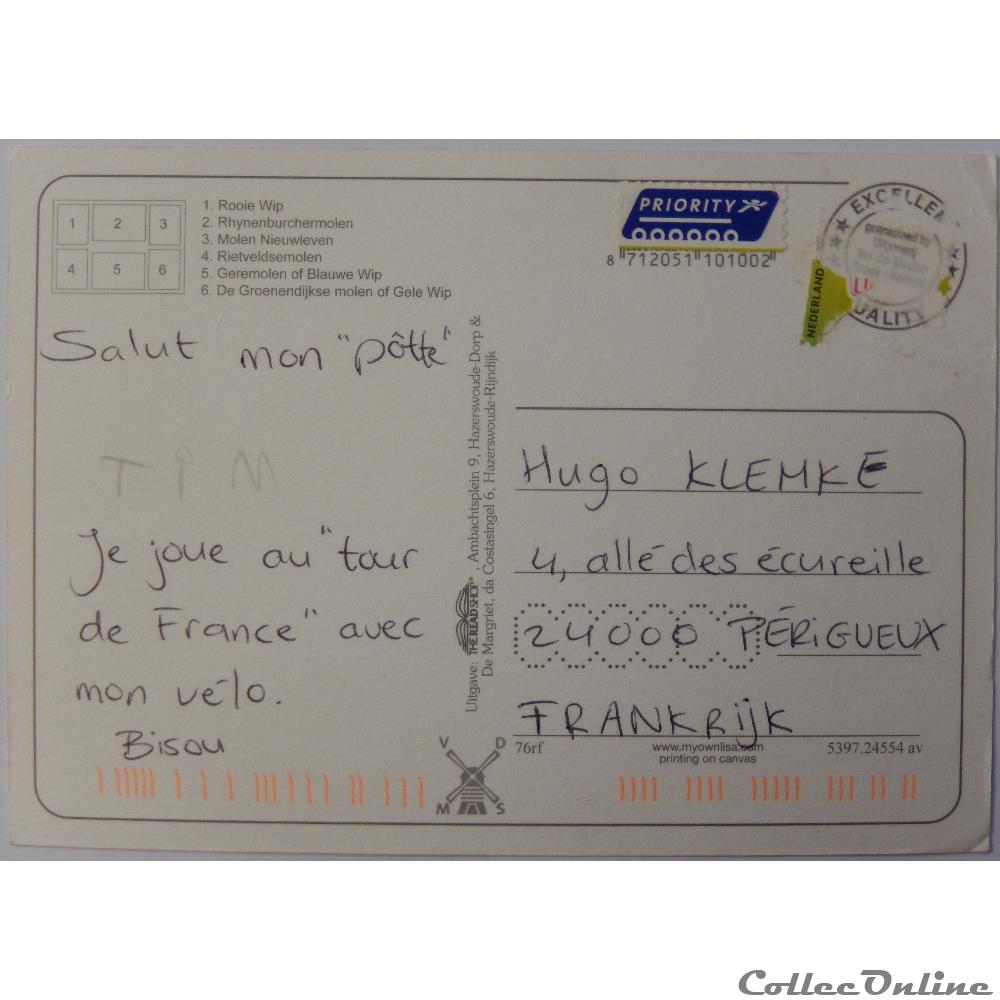 1 2 3
4 5 6
1. Rooie Wip
2. Rhynenburchermolen
3. Molen Nieuwleven
4. Rietveldsemolen
5. Geremolen of Blauwe Wip
6. De Groenendijkse molen of Gele Wip
PRIORITY
8 712051 101002
NEDERLAND
guaranteed by
Salut mon "pôtte"
TIM
Je joue au "tour
de France" avec
mon vélo.
Bisou
Uitgave: THE READ SHOP®, Ambachtsplein 9, Hazerswoude-Dorp &
De Margriet, da Costasingel 6, Hazerswoude-Rijndijk
Hugo KLEMKE
4, allé des écureille
24000 PÉRIGUEUX
FRANKRIJK
76rf
www.myownlisa.com
printing on canvas
5397.24554 av
V D
M S
CollecOnline